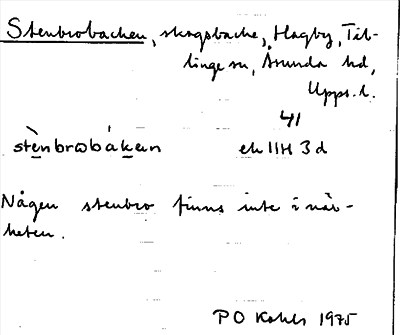 Stenbrobacken, skogsbacke, Hagby, Til-
linge sn, Åsunda hd,
Upps. l.
41
stènbrωbákan ek 11H 3 d
Någon stenbro finns inte i när-
heten.
P O Kohls 1975